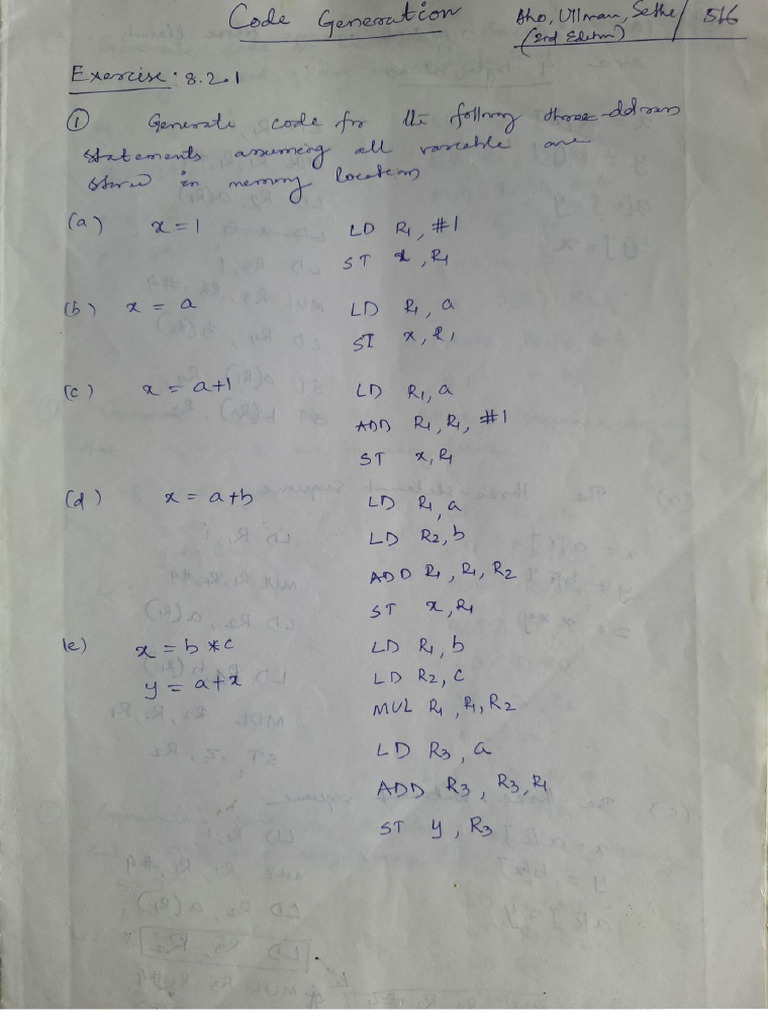 Code Generation
Aho, Ullman, Sethe / 516
(2nd Edition)
Exercise: 8.2.1
① Generate code for the following three-address
statements assuming all variable are
stored in memory locations
(a) x = 1 LD R1, #1
ST x, R1
(b) x = a LD R1, a
ST x, R1
(c) x = a+1 LD R1, a
ADD R1, R1, #1
ST x, R1
(d) x = a+b LD R1, a
LD R2, b
ADD R1, R1, R2
ST x, R1
(e) x = b *c LD R1, b
y = a+x LD R2, c
MUL R1, R1, R2
LD R3, a
ADD R3, R3, R1
ST y, R3